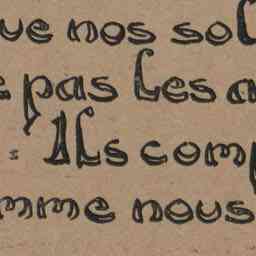 ue nos sol
pas les a
: Ils comp
mme nous